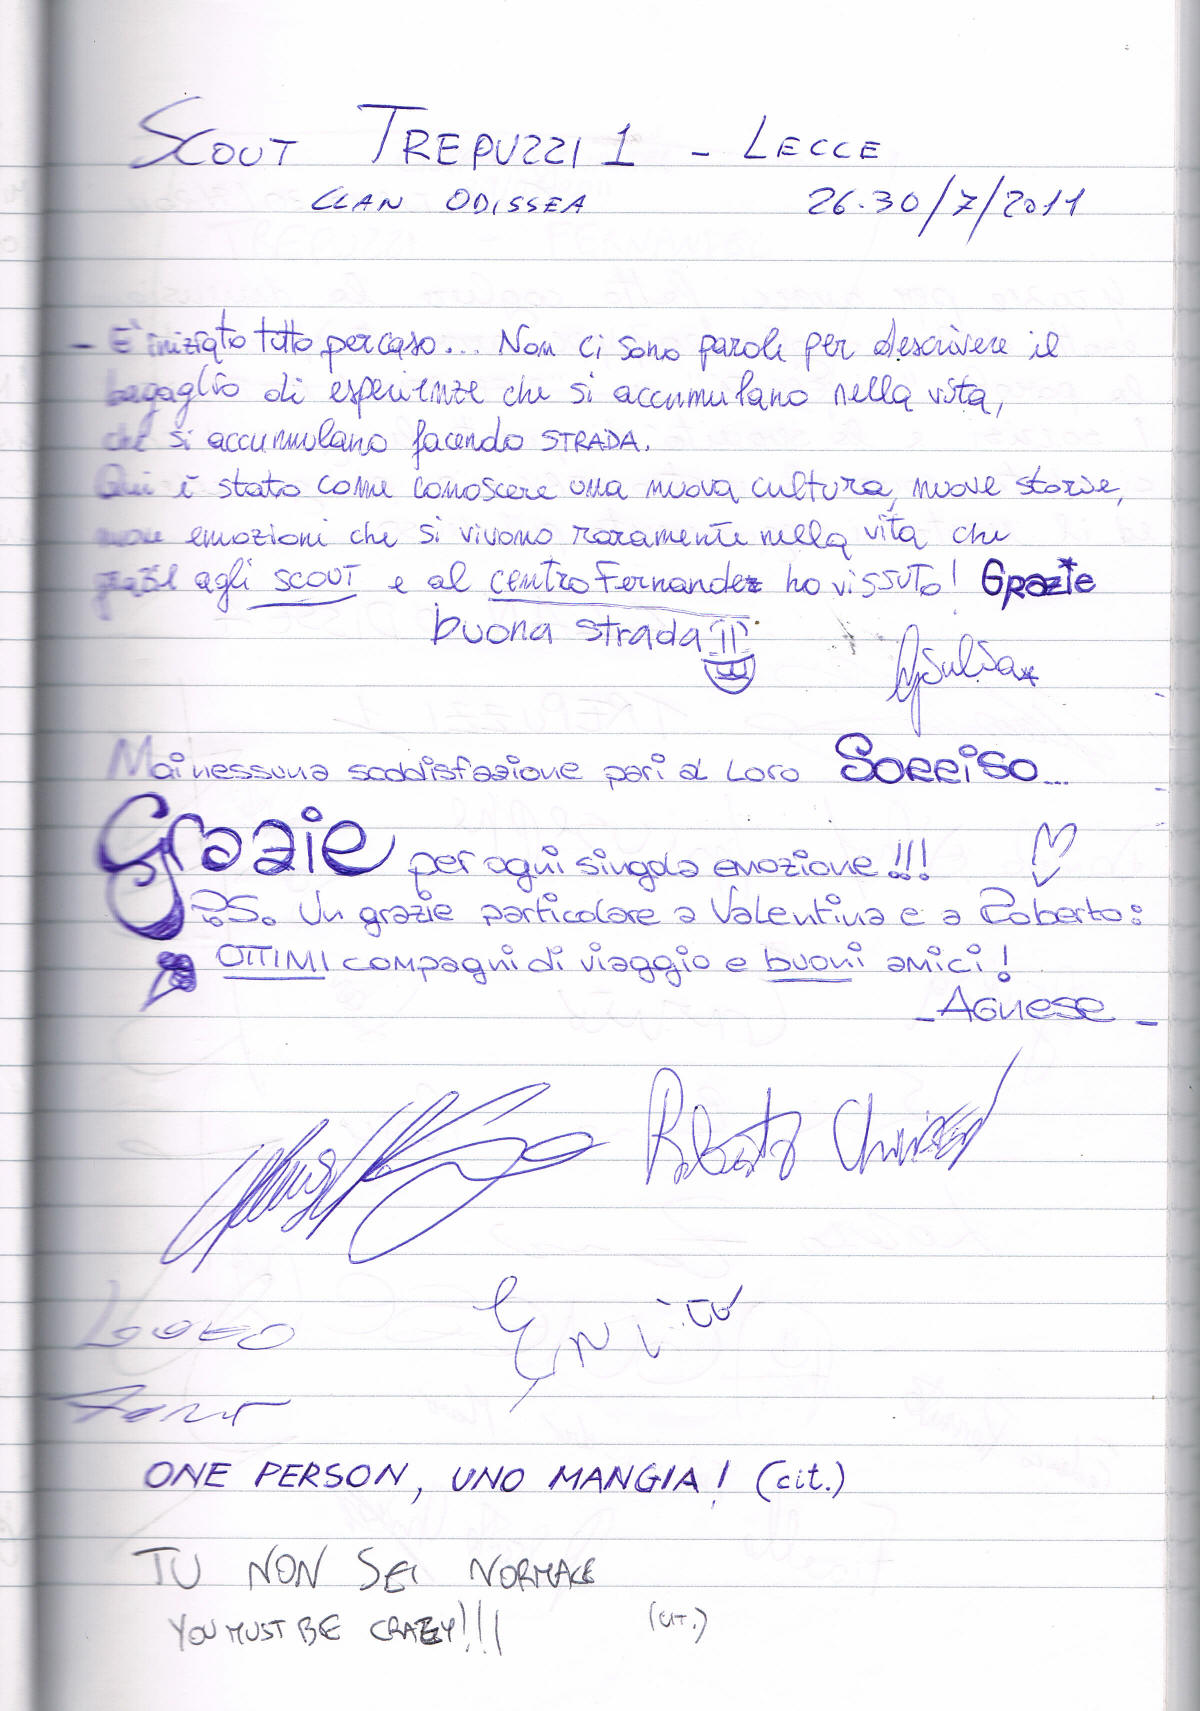 SCOUT TREPUZZI 1 - LECCE
CLAN ODISSEA 26-30/7/2011
- E' iniziato tutto per caso... Non ci sono parole per descrivere il
bagaglio di esperienze che si accumulano nella vita,
che si accumulano facendo STRADA.
Qui è stato come conoscere una nuova cultura, nuove storie,
nuove emozioni che si vivono raramente nella vita che
grazie agli SCOUT e al centro Fernandez ho vissuto! Grazie
buona strada
Giulia*
Mai nessuna soddisfazione pari al Loro Sorriso...
Grazie per ogni singola emozione!!!
P.S. Un grazie particolare a Valentina e a Roberto:
OTTIMI compagni di viaggio e buoni amici!
- Agnese -
Roberto
ONE PERSON, UNO MANGIA! (cit.)
TU NON SEI NORMALE
YOU MUST BE CRAZY!!! (CIT.)